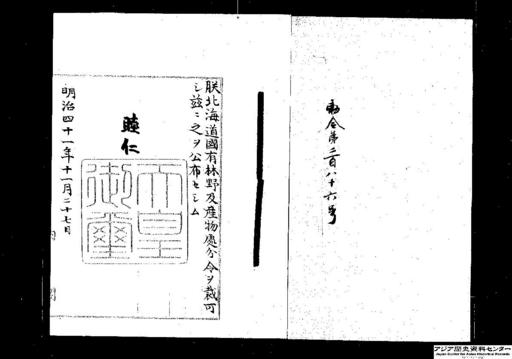 勅令第二百八十六号
朕北海道國有林野及産物處分令ヲ裁可
シ茲ニ之ヲ公布セシム
睦仁
天皇御璽
明治四十一年十一月二十七日
内
閣
アジア歴史資料センター
Japan Center for Asian Historical Records